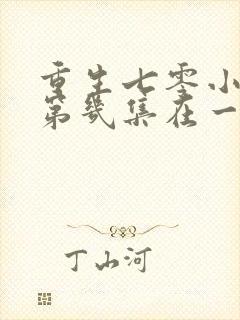 重生七零小
第几集在一
丁山河